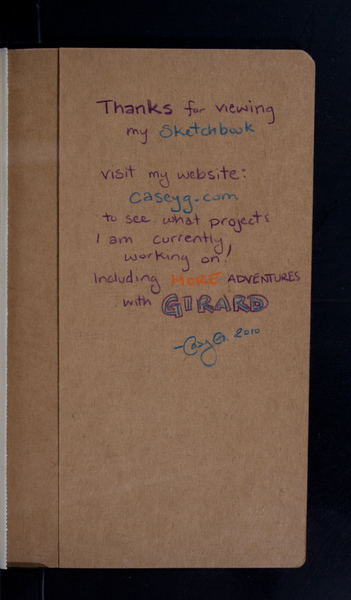 Thanks for viewing
my Sketchbook
visit my website:
caseyg.com
to see what projects
I am currently
working on!
Including MORE ADVENTURES
with GIRARD
-Casey G. 2010